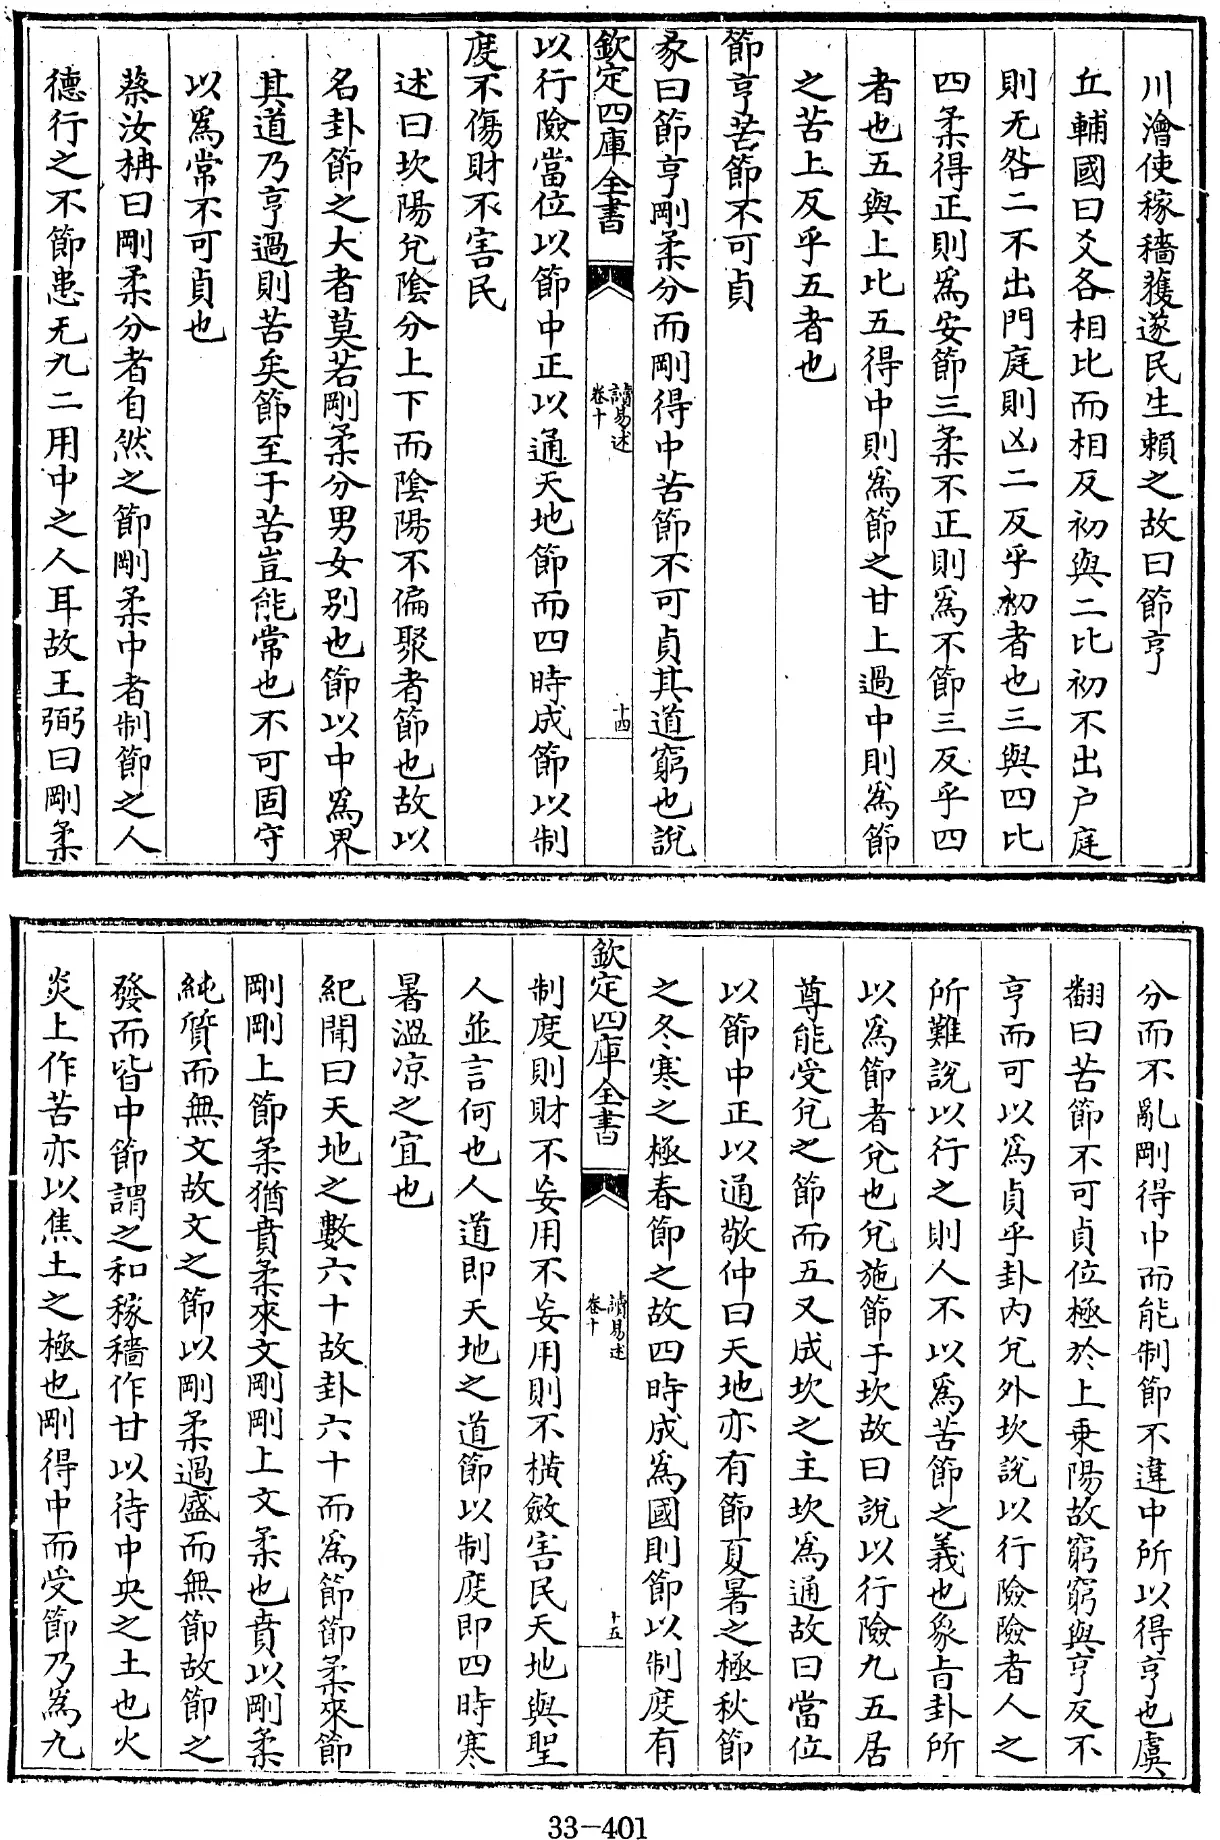 川澮使稼穡獲遂民生賴之故曰節亨
丘輔國曰爻各相比而相反初與二比初不出户庭
則无咎二不出門庭則凶二反乎初者也三與四比
四柔得正則爲安節三柔不正則爲不節三反乎四
者也五與上比五得中則爲節之甘上過中則爲節
之苦上反乎五者也
節亨苦節不可貞
彖曰節亨剛柔分而剛得中苦節不可貞其道窮也說
欽定四庫全書
讀易述
卷十
十四
以行險當位以節中正以通天地節而四時成節以制
度不傷財不害民
述曰坎陽兌陰分上下而陰陽不偏聚者節也故以
名卦節之大者莫若剛柔分男女别也節以中爲界
其道乃亨過則苦矣節至于苦豈能常也不可固守
以爲常不可貞也
蔡汝柟曰剛柔分者自然之節剛柔中者制節之人
德行之不節患无九二用中之人耳故王弼曰剛柔
分而不亂剛得中而能制節不違中所以得亨也虞
翻曰苦節不可貞位極於上乘陽故窮窮與亨反不
亨而可以爲貞乎卦内兌外坎說以行險險者人之
所難說以行之則人不以爲苦節之義也彖㫖卦所
以爲節者兌也兌施節于坎故曰說以行險九五居
尊能受兌之節而五又成坎之主坎爲通故曰當位
以節中正以通敬仲曰天地亦有節夏暑之極秋節
之冬寒之極春節之故四時成爲國則節以制度有
欽定四庫全書
讀易述
卷十
十五
制度則財不妄用不妄用則不橫斂害民天地與聖
人並言何也人道即天地之道節以制度即四時寒
暑溫凉之宜也
紀聞曰天地之數六十故卦六十而爲節節柔來節
剛剛上節柔猶賁柔來文剛剛上文柔也賁以剛柔
純質而無文故文之節以剛柔過盛而無節故節之
發而皆中節謂之和稼穡作甘以待中央之土也火
炎上作苦亦以焦土之極也剛得中而受節乃爲九
33-401